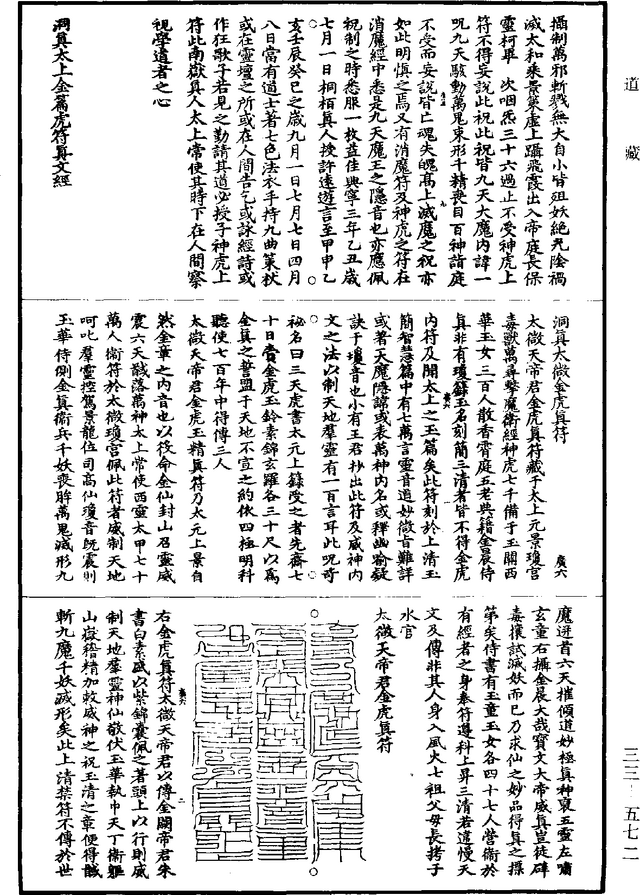 道藏
攝制萬邪斬戮無大自小皆殂妖絕炁陰禍
滅太和乘景策虛上躡飛霞出入帝庭長保
靈柯畢　次咽炁三十六過止不受神虎上
符不得妄說此祝此祝皆九天大魔內諱一
呪九天駭動萬鬼束形千精喪目百神詣庭
不受而妄說皆亡魂失魄高上滅魔之祝亦
如此明慎之焉又有消魔符及神虎之符在
消魔經中悉是九天魔王之隱音也亦應佩
祝制之時悉服一枚益佳興寧三年乙丑歲
七月一日桐柏真人授許遠遊言至甲申乙
亥壬辰癸巳之歲九月一日七月七日四月
八日當有道士著七色法衣手持九曲策杖
或在靈壇之所或在人間告乞或詠經詩或
作狂歌子若見之勤請其道必授子神虎上
符此南嶽真人太上常使其時下在人間察
視學道者之心
洞真太上金篇虎符真文經
洞真太微金虎真符　廣六
太微天帝君金虎真符藏于太上元景瓊宮
毒獸萬尋擊魔衛經神虎七千備于玉闕西
華玉女三百人散香霄庭五老典籍金晨侍
真非有瓊籙玉名刻簡三清者皆不得金虎
內符及開太上之玉篇矣此符刻於上清玉
簡智慧篇中有七萬言靈音道妙微旨難詳
或著天魔隱諱或表萬神內名或釋幽喻
訣于瓊音也小有王君抄出此符及威神內
文之法以制天地羣靈有一百言耳此呪奇
祕名曰三天虎書太元上籙受之者先齋七
十日賫金虎玉鈴素錦玄羅各三十尺以爲
金真之誓盟于天地不宣之約依四極明科
聽使七百年中得傳三人
太微天帝君金虎玉精真符乃太元上景自
然金章之內音也以役命金仙封山召靈威
震六天馘落萬神太上常使西靈太甲七十
萬人衛符於太微瓊宮佩此符者威制天地
呵叱羣靈控駕景龍位司高仙瓊音旣震則
玉華侍側金真衛兵千妖喪眸萬鬼滅形九
魔迸首六天摧傾道妙極真神裹玉靈左嘯
玄童右攝金晨大哉寶文大帝威真豈徒辟
毒攘試滅妖而已乃求仙之妙品得真之操
第矣侍書有玉童玉女各四十七人營衛於
有經者之身奉符遵科上昇三清若違慢天
文及傳非其人身入風火七祖父母長拷于
水官
太微天帝君金虎真符
右金虎真符太微天帝君以傳金闕帝君朱
書白素盛以紫錦囊佩之著頭上以行則威
制天地羣靈神仙敬伏玉華執巾天丁衛軀
山嶽稽精加敕威神之祝玉清之章便得馘
斬九魔千妖滅形矣此上清禁符不傳於世
三三—五七二